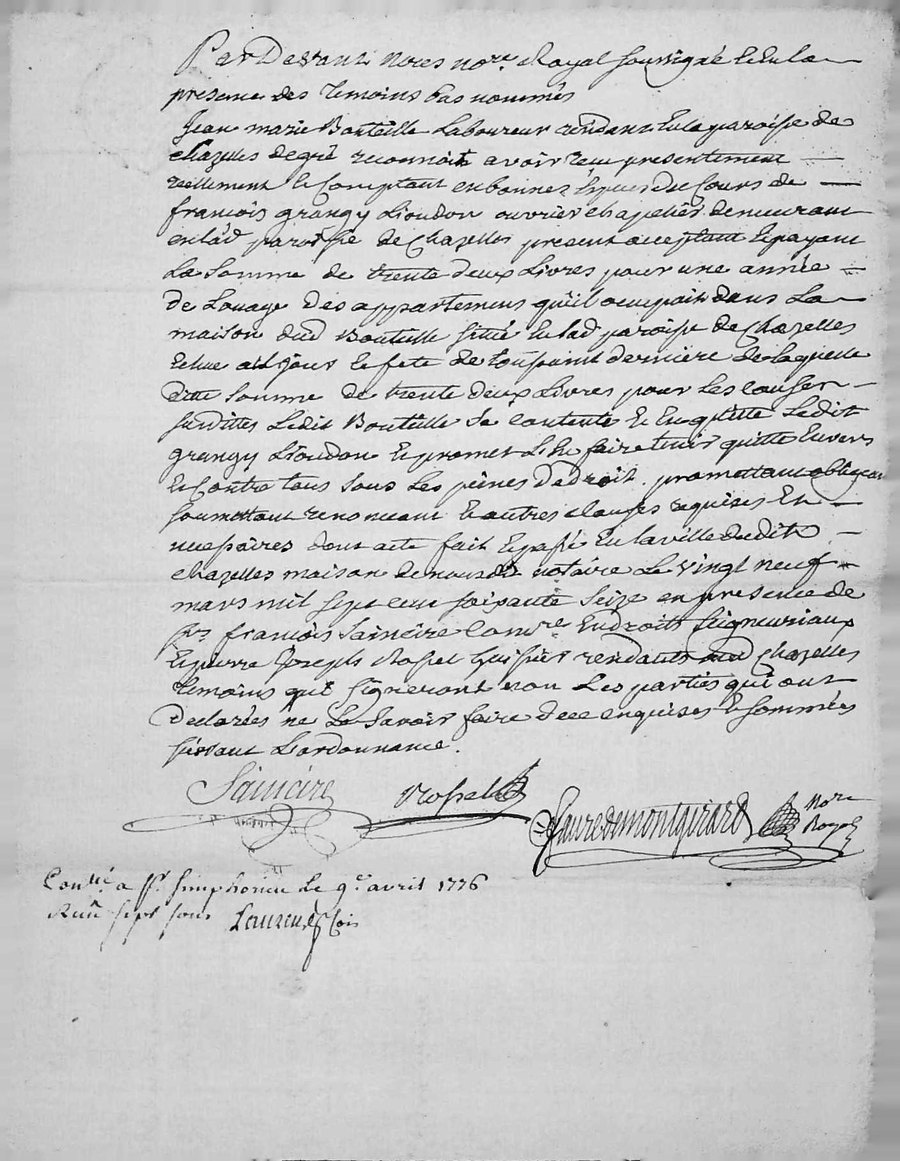 Par Devant Nores no.re Royal soussigné et en la
presence des temoins bas nommés
Jean marie Bouteille Laboureur residant en la paroisse de
chazelles de gré reconnoit avoir reçu presentement
reellement et Comptant en bonnes Especes du Cours de
françois grangy Lioudon ouvrier chapelier demeurant
en lad. paroisse de Chazelles present acceptant et payant
La Somme de trente deux Livres pour une année
de Louage des appartemens qu'il occupait dans La
maison dud Bouteille située en lad paroisse de Chazelles
echue au jour et fete de toussaint derniere de laquelle
ditte somme de trente deux Livres pour Les causes
susdittes Ledit Bouteille se contente et en quitte Ledit
grangy Lioudon et promet L'en faire tenir quitte Envers
et Contre tous sous Les peines de droit. promettant obligeant
soumettant renonceant et autres clauses requises Et
necessaires dont acte fait et passé en la ville dudit
chazelles maison de nousdit notaire Le vingt neuf
mars mil sept cent soixante Seize en presence de
françois Saincire Com.re En droits Seigneuriaux
Et pierre Joseph Rosset huissier residants aud Chazelles
temoins qui signeront non Les parties qui ont
declarées ne Le Savoir faire de ce enquises et sommées
suivant L'ordonnance.
Saincire Rosset
faure de montgirard No.re Royal
Con.lé a S.t Simphorien Le 9.e avril 1776
Reçu sept sous